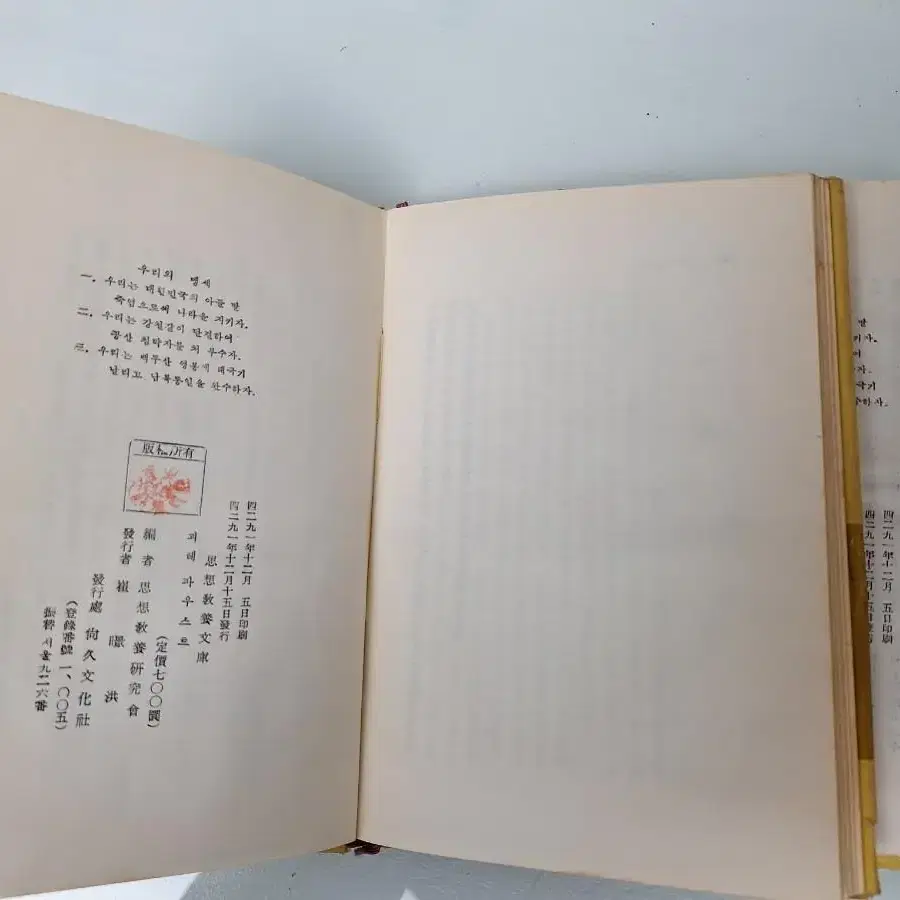 우리의 맹세
一. 우리는 대한민국의 아들 딸
죽엄으로써 나라를 지키자.
二. 우리는 강철같이 단결하여
공산 침략자를 쳐 부수자.
三. 우리는 백두산 영봉에 태극기
날리고 남북통일을 완수하자.
版權所有
四二九一年十二月 五日印刷
四二九一年十二月十五日發行
思想敎養文庫
괴테 파우스트
(定價七〇〇圜)
編者 思想敎養硏究會
發行者 崔暻洪
發行處 尙久文化社
(登錄番號 一、〇〇五)
振替 서울 九二六番
딸
키자.
여
자.
극기
수하자.
四二九一年十二月 五日印刷
四二九一年十二月十五